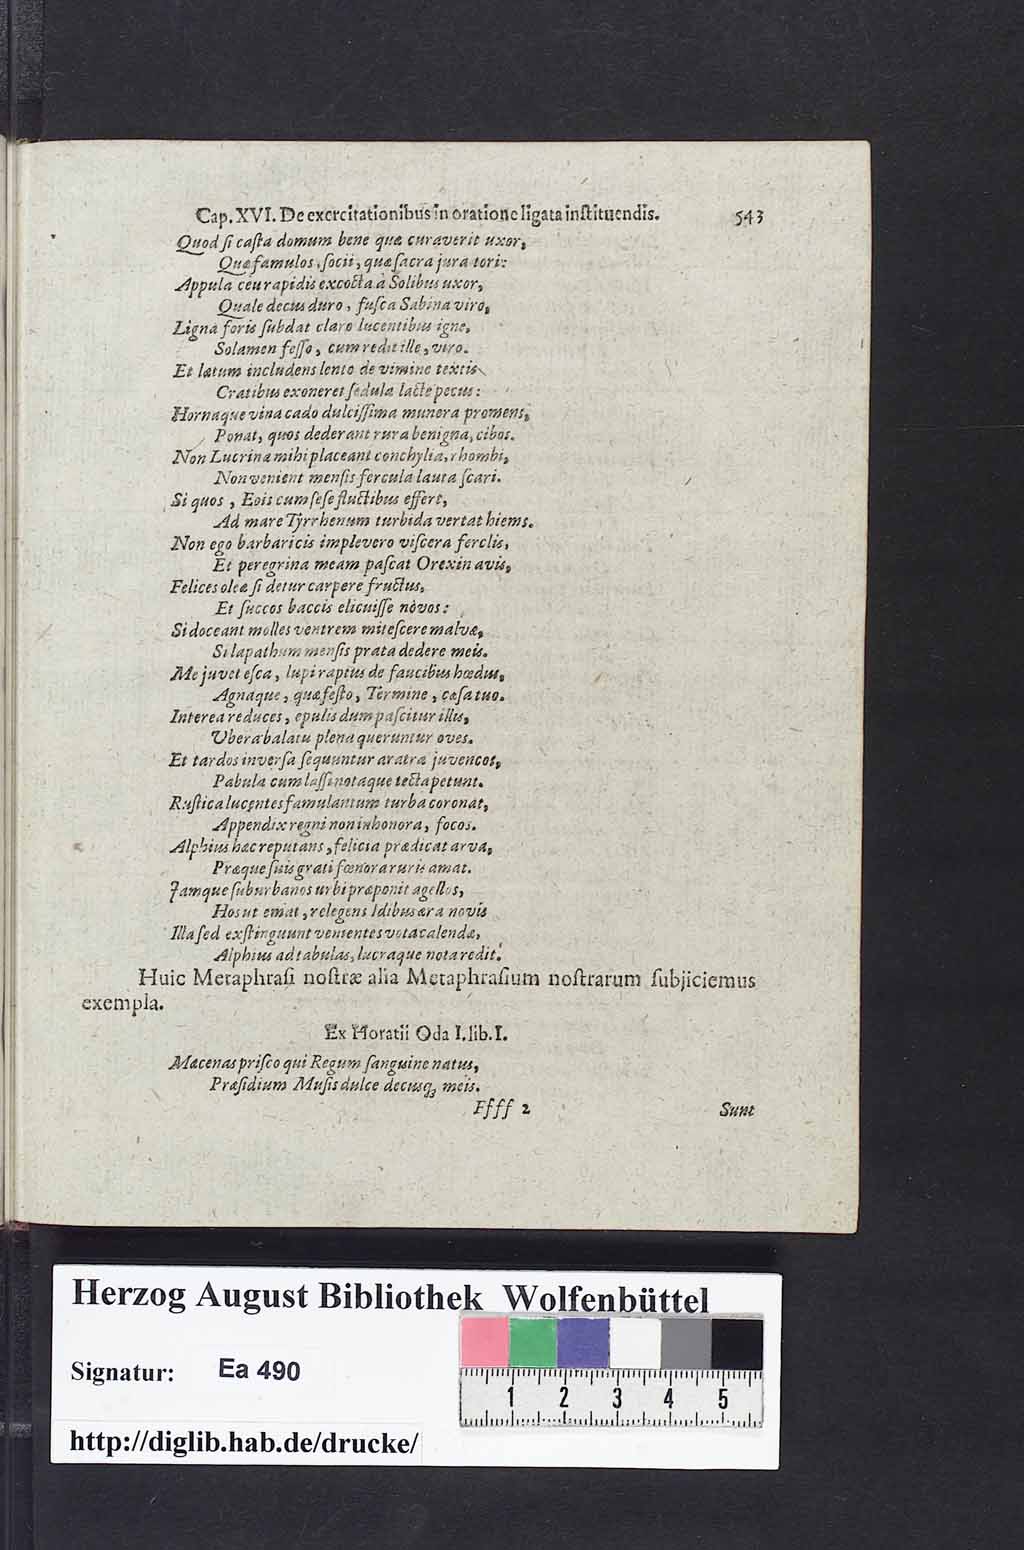 Cap. XVI. De exercitationibus in oratione ligata inſtituendis. 543
Quod ſi caſta domum bene quæ curaverit uxor,
Quæ famulos, ſocii, quæ ſacra jura tori:
Appula ceu rapidis excocta à Solibus uxor,
Quale decus duro, fuſca Sabina viro,
Ligna foris ſubdat claro lucentibus igne,
Solamen feſſo, cum redit ille, viro.
Et lætum includens lento de vimine textis
Cratibus exoneret ſedula lacte pecus:
Hornaque vina cado dulciſſima munera promens,
Ponat, quos dederant rura benigna, cibos.
Non Lucrina mihi placeant conchylia, rhombi,
Non venient menſis fercula lauta ſcari.
Si quos, Eois cum ſeſe fluctibus effert,
Ad mare Tyrrhenum turbida vertat hiems.
Non ego barbaricis implevero viſcera ferclis,
Et peregrina meam paſcat Orexin avis,
Felices oleæ ſi detur carpere fructus,
Et ſuccos baccis elicuiſſe nòvos:
Si doceant molles ventrem miteſcere malvæ,
Si lapathum menſis prata dedere meis.
Me juvet eſca, lupi raptus de faucibus hœdus,
Agnaque, quæ feſto, Termine, cæſa tuo.
Interea reduces, epulis dum paſcitur illis,
Vbera balatu plena queruntur oves.
Et tardos inverſa ſequuntur aratra juvencos,
Pabula cum laſſi notaque tecta petunt.
Ruſtica lucentes famulantum turba coronat,
Appendix regni non inhonora, focos.
Alphius hæc reputans, felicia prædicat arva,
Præque ſuis grati fœnora ruris amat.
Jamque ſuburbanos urbi præponit agellos,
Hos ut emat, relegens Idibus æra novis
Illa ſed exſtinguunt venientes vota calendæ,
Alphius ad tabulas, lucraque nota redit.
Huic Metaphraſi noſtræ alia Metaphraſium noſtrarum ſubjiciemus
exempla.
Ex Horatii Oda I. lib. I.
Mæcenas priſco qui Regum ſanguine natus,
Præſidium Muſis dulce decusq; meis.
Ffff 2 Sunt
Herzog August Bibliothek Wolfenbüttel
Signatur: Ea 490
1 2 3 4 5
http://diglib.hab.de/drucke/